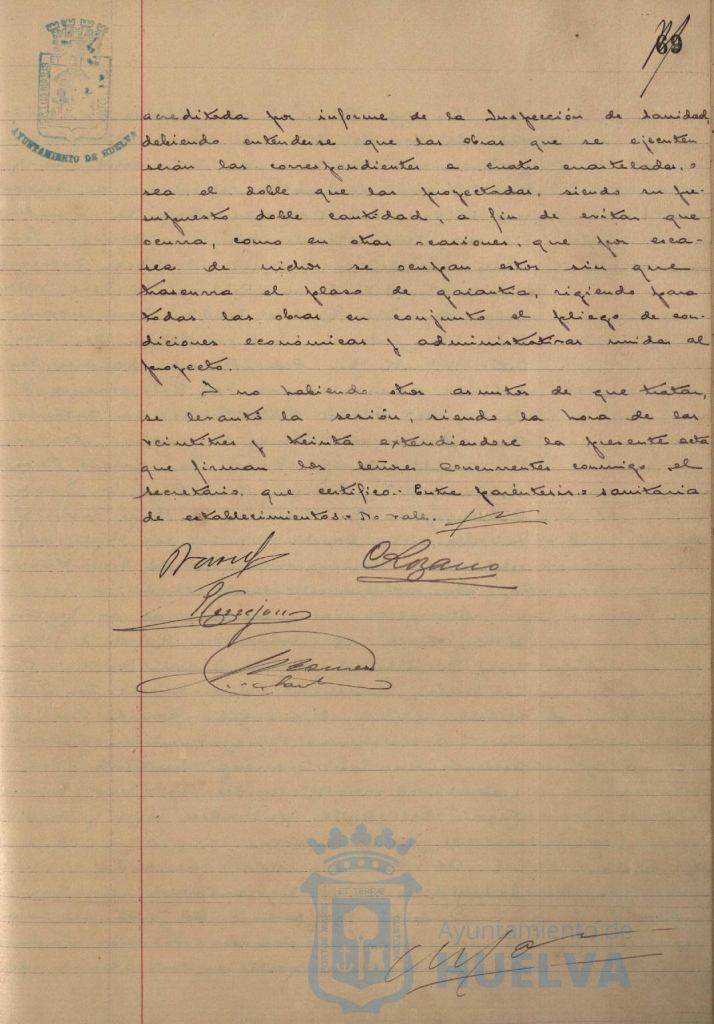 69
AYUNTAMIENTO DE HUELVA
acreditada por informe de la Inspección de Sanidad,
debiendo entenderse que las obras que se ejecuten
serán las correspondientes a cuatro cuarteladas, o
sea el doble que las proyectadas, siendo su pre-
supuesto doble cantidad, a fin de evitar que
ocurra, como en otras ocasiones, que por esca-
sea de nichos se ocupan estos sin que
trascurra el plaso de garantia, rigiendo para
todas las obras en conjunto el pliego de con-
diciones económicas y administrativas unidas al
proyecto.
Y no habiendo otros asuntos de que tratar,
se levantó la sesión, siendo la hora de las
veintitres y treinta extendiendose la presente acta
que firman los señores concurrentes conmigo, el
secretario, que certifico.- Entre paréntesis.- sanitaria
de establecimientos.- No vale.
Lozano
ET TERRÆ
PORTUS MARIS
CUSTODIA
Ayuntamiento de
HUELVA